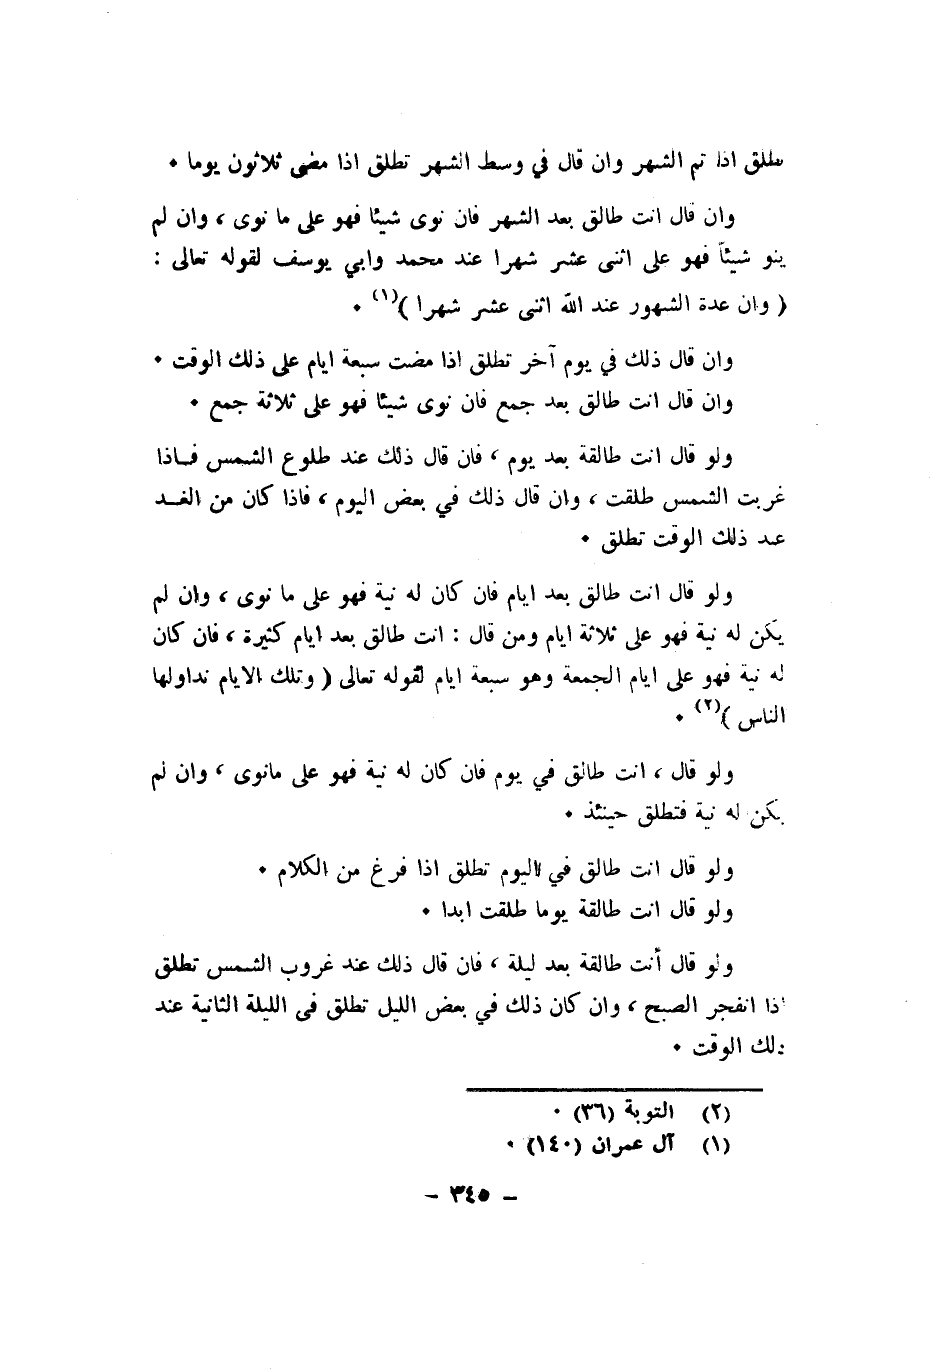 تطلق اذا تم الشهر وان قال في وسط الشهر تطلق اذا مضى ثلاثون يوما ٠
وان قال انت طالق بعد الشهر فان نوى شيئا فهو على ما نوى ، وان لم
ينو شيئاً فهو على اثنى عشر شهرا عند محمد وابي يوسف لقوله تعالى :
( وان عدة الشهور عند الله اثنى عشر شهرا )(١) ٠
وان قال ذلك في يوم آخر تطلق اذا مضت سبعة ايام على ذلك الوقت ٠
وان قال انت طالق بعد جمع فان نوى شيئا فهو على ثلاثة جمع ٠
ولو قال انت طالقة بعد يوم ، فان قال ذلك عند طلوع الشمس فـاذا
غربت الشمس طلقت ، وان قال ذلك في بعض اليوم ، فاذا كان من الغـد
عند ذلك الوقت تطلق ٠
ولو قال انت طالق بعد ايام فان كان له نية فهو على ما نوى ، وان لم
يكن له نية فهو على ثلاثة ايام ومن قال : انت طالق بعد ايام كثيرة ، فان كان
له نية فهو على ايام الجمعة وهو سبعة ايام لقوله تعالى ( وتلك الايام نداولها
الناس )(٢) ٠
ولو قال ، انت طالق في يوم فان كان له نية فهو على مانوى ، وان لم
يكن له نية فتطلق حينئذ ٠
ولو قال انت طالق في اليوم تطلق اذا فرغ من الكلام ٠
ولو قال انت طالقة يوما طلقت ابدا ٠
ولو قال أنت طالقة بعد ليلة ، فان قال ذلك عند غروب الشمس تطلق
اذا انفجر الصبح ، وان كان ذلك في بعض الليل تطلق فى الليلة الثانية عند
ذلك الوقت ٠
(٢) التوبة (٣٦) ٠
(١) آل عمران (١٤٠) ٠
– ٣٤٥ –